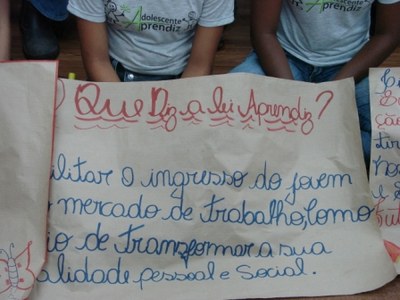 Adolescente Aprendiz
Adolescente Aprendiz
O Que Diz a lei Aprendiz?
ilitar o ingresso do jovem
mercado de trabalho, como
io de Transformar a sua
alidade pessoal e Social.